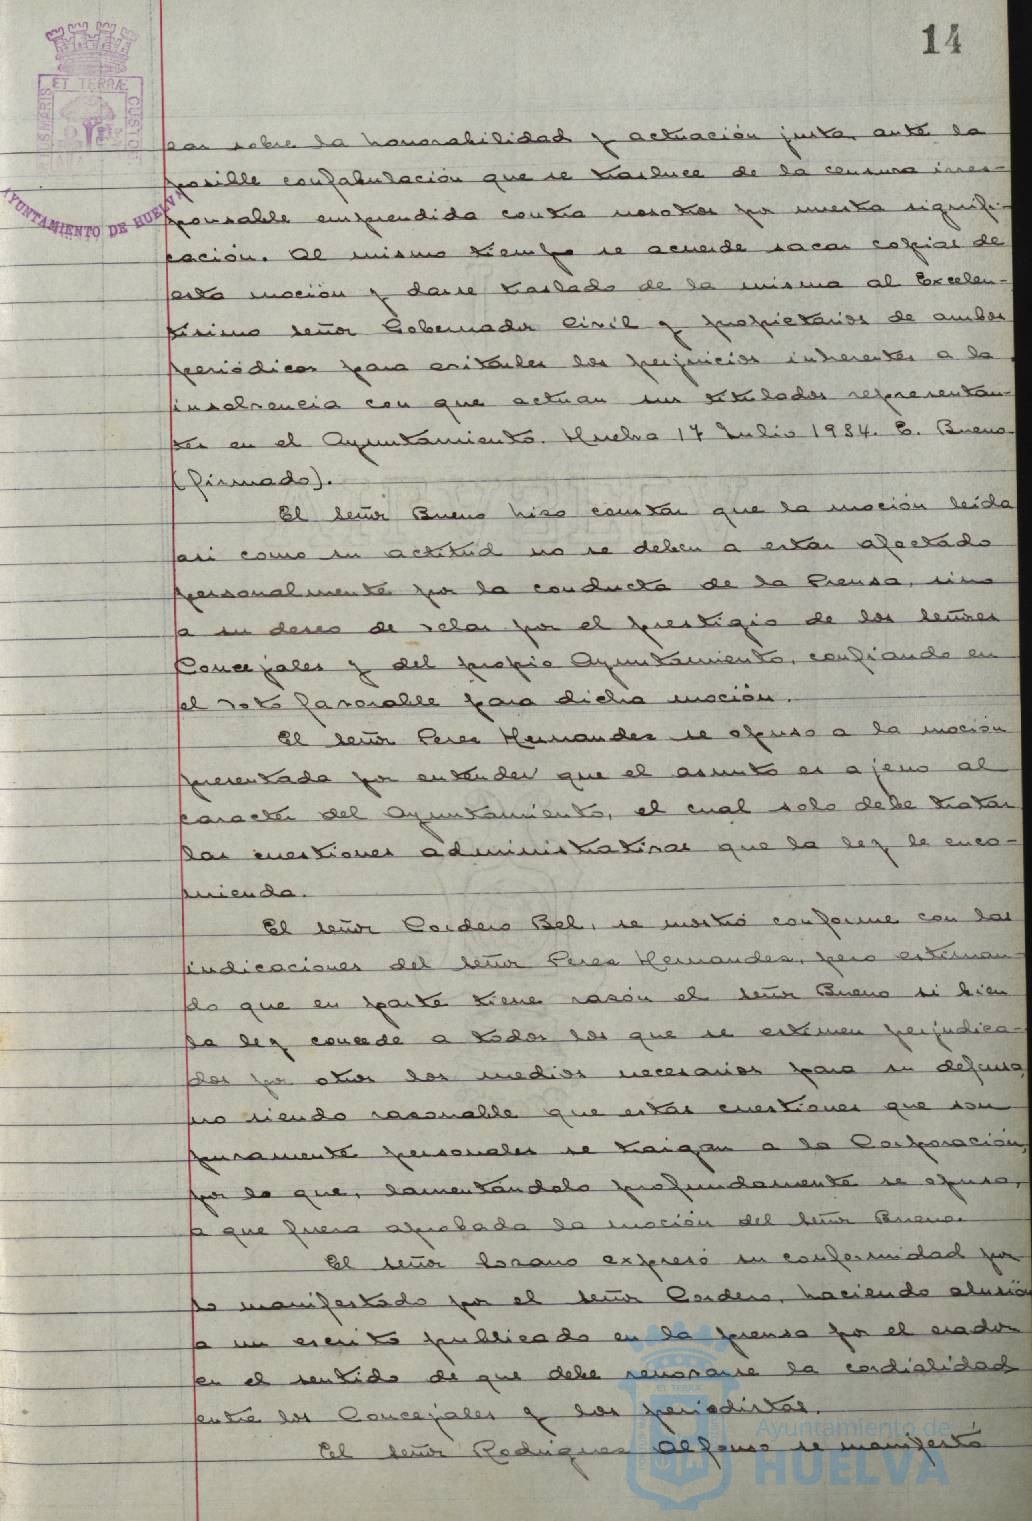 14
ET TERRÆ
CUSTOS
AYUNTAMIENTO DE HUELVA
sar sobre la honorabilidad y actuación justa, ante la
posible confabulación que se trasluce de la censura irres-
ponsable emprendida contra nosotros por nuestra signifi-
cación. Al mismo tiempo se acuerde sacar copias de
esta moción y darse traslado de la misma al Excelen-
tísimo señor Gobernador Civil y propietarios de ambos
periódicos para evitarles los perjuicios inherentes a la
insolvencia con que actuan sus titulados representan-
tes en el Ayuntamiento. Huelva 17 Julio 1934. E. Bueno.
(firmado).
El señor Bueno hizo constar que la moción leída
asi como su actitud no se deben a estar afectado
personalmente por la conducta de la Prensa, sino
a su deseo de velar por el prestigio de los señores
Concejales y del propio Ayuntamiento, confiando en
el voto favorable para dicha moción.
El señor Perez Hernandez se opuso a la moción
presentada por entender que el asunto es ajeno al
caracter del Ayuntamiento, el cual solo debe tratar
las cuestiones administrativas que la ley le enco-
mienda.
El señor Cordero Bel, se mostró conforme con las
indicaciones del señor Perez Hernandez, pero estiman-
do que en parte tiene razón el señor Bueno si bien
la ley concede a todos los que se estimen perjudica-
dos por otros los medios necesarios para su defensa,
no siendo razonable que estas cuestiones que son
puramente personales se traigan a la Corporación,
por lo que, lamentándolo profundamente se opuso,
a que fuera aprobada la moción del señor Bueno.
El señor Lozano expresó su conformidad por
lo manifestado por el señor Cordero, haciendo alusión
a un escrito publicado en la prensa por el orador
en el sentido de que debe renovarse la cordialidad
entre los Concejales y los periodistas.
El señor Rodriguez Alfonso se manifestó
Ayuntamiento de
HUELVA